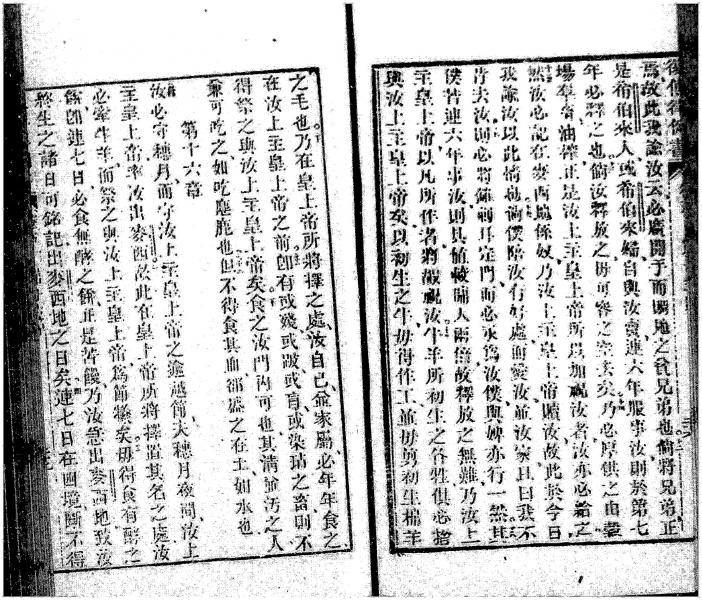 焉故此我諭汝云必廣開手而賙地之貧兄弟也倘將兄弟正
是希伯來人或希伯來婦自與汝賣連六年服事汝則於第七
年必釋之也倘汝釋放之毋可容之空去矣乃必厚供之由
油榨正是汝上主皇上帝所以加祝汝者汝亦必給之
然汝必記在麥西處係奴乃汝上主皇上帝贖汝故此於今日
我諭汝以此情也倘僕陪汝有好處而愛汝並汝家且曰我不
肯去汝則必將錐刺耳在門而必永為汝僕與婢亦行一然其
僕若連六年事汝則其值較人兩倍故釋放之無難乃汝上
主皇上帝以凡所作者將祝汝牛羊所初生之各牲俱必捨
與汝上主皇上帝矣以初生之牛毋得作工並毋剪初生綿羊
之毛也乃在皇上帝所將擇之處汝自己並家屬必年年食之
在汝上主皇上帝之前卽有或殘或跛或盲或染玷之畜則不
得祭之與汝上主皇上帝矣食之汝門內可也其清污之人
兼可吃之如吃麈鹿也但不得食其血卻盛之在土如水也
第十六章
汝必守穗月而守汝上主皇上帝之逾越節夫穗月夜間汝上
主皇上帝率汝出麥西故此在皇上帝所將擇置其名之處汝
必牽牛羊而祭之與汝上主皇上帝為節犧矣毋得食有酵之
餅卽連七日必食無酵之餅正是苦乃汝急出麥西地致汝
終生之諸日可銘記出麥西地之日矣連七日在四境斷不得